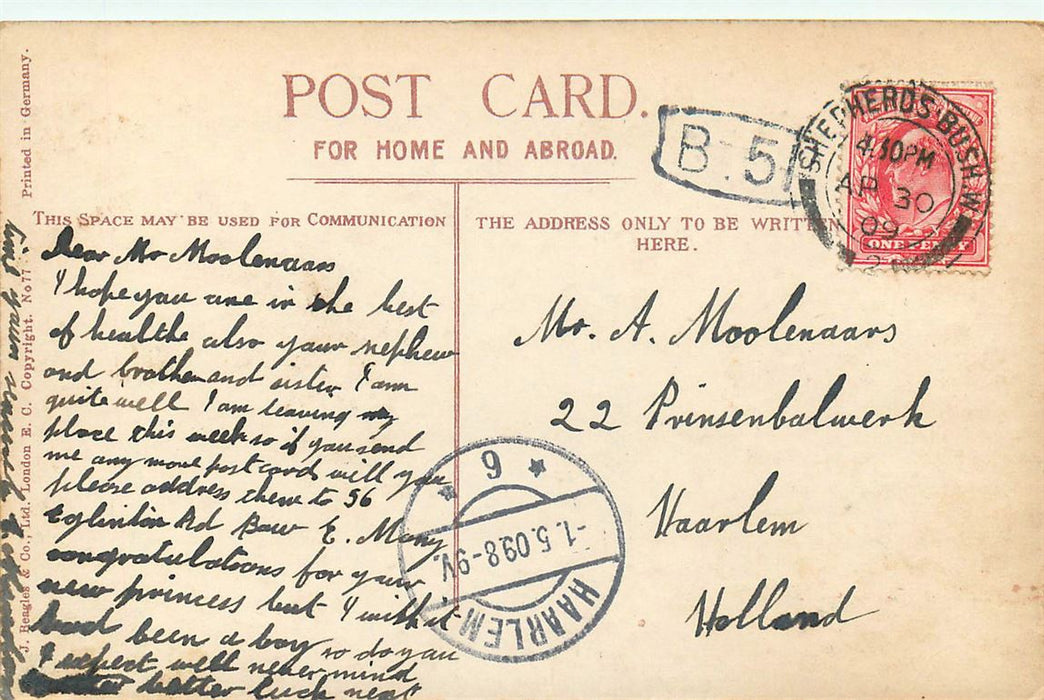 POST CARD.
FOR HOME AND ABROAD.
THIS SPACE MAY BE USED FOR COMMUNICATION
THE ADDRESS ONLY TO BE WRITTEN
HERE.
Printed in Germany.
J. Beagles & Co., Ltd., London E. C. Copyright. No 77
B. 5
SHEPHERDS BUSH. W
4.30PM
AP 30
09
ONE PENNY
Dear Mr Moolenaars
I hope you are in the best
of healthe also your nephew
and brother and sister I am
quite well I am leaving my
place this week so if you send
me any more post cards will you
please address them to 56
Eglinton Rd Bow E. Many
congratulations for your
new princess but I wish it
had been a boy so do you
I expect well never mind
better luck next
Mr. A. Moolenaars
22 Prinsenbolwerk
Haarlem
Holland
6
-1.5.09.8-9V.
HAARLEM